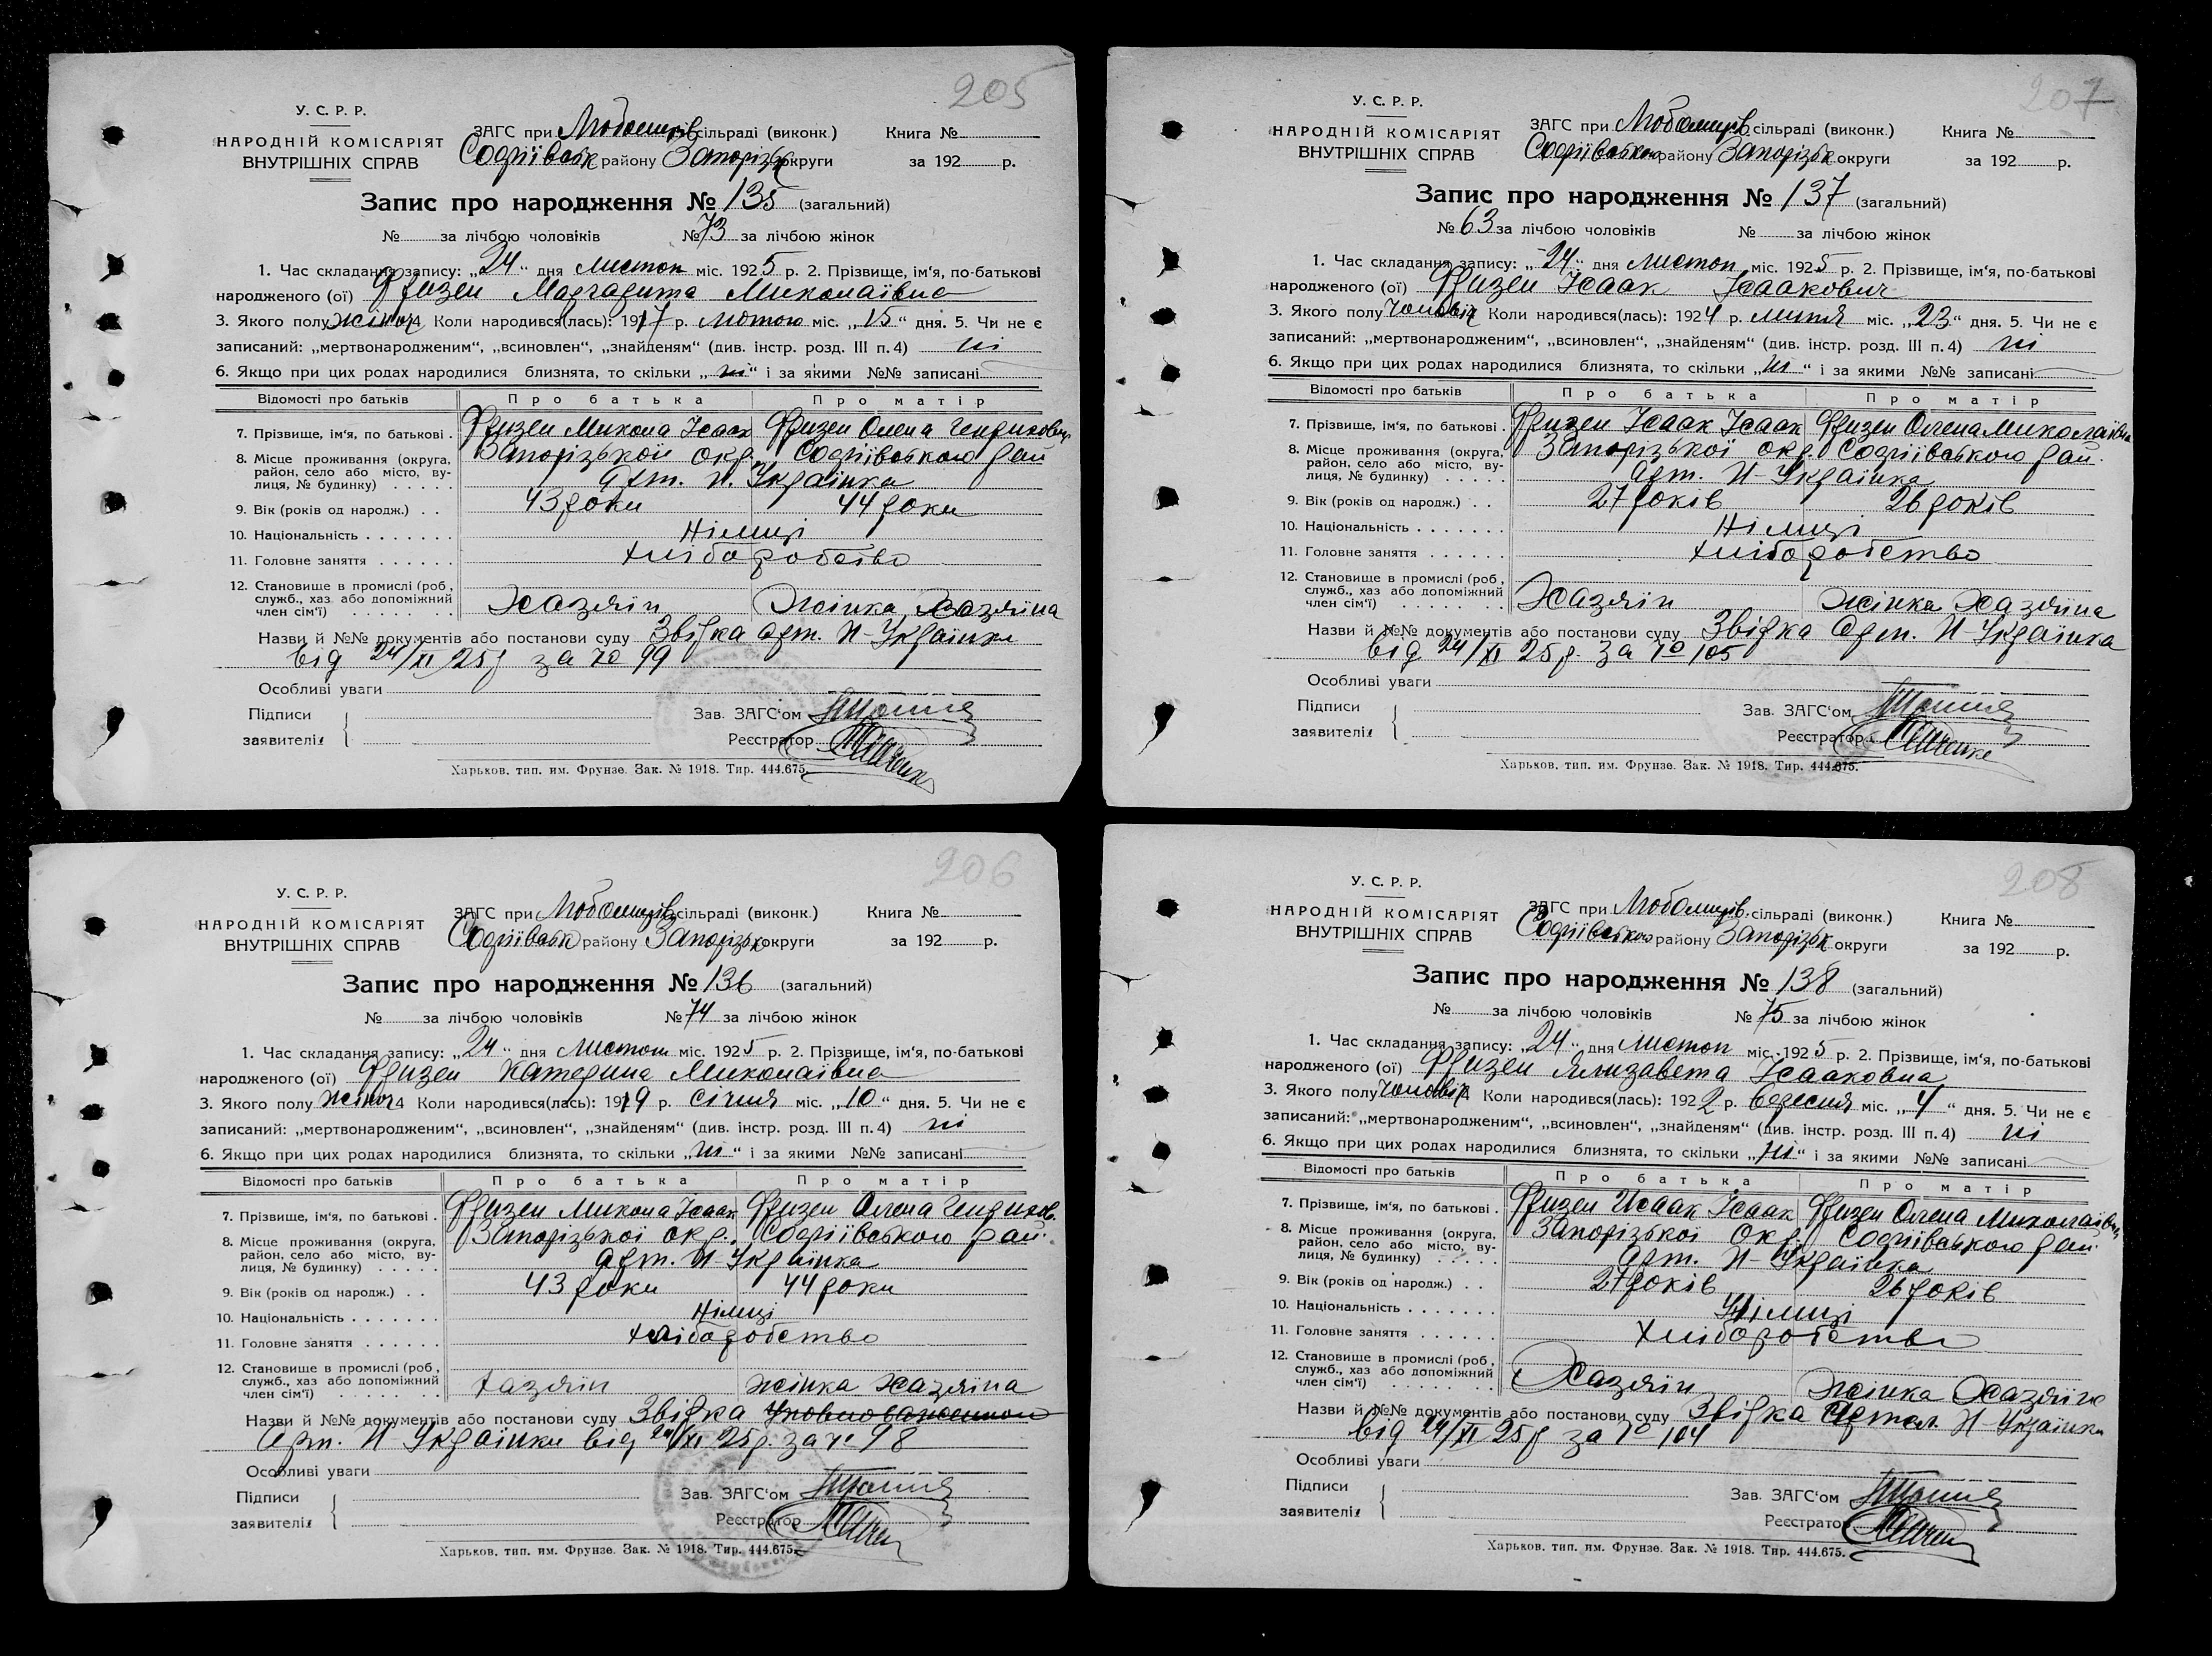 205
У. С. Р. Р.
НАРОДНІЙ КОМІСАРІЯТ
ВНУТРІШНІХ СПРАВ
ЗАГС при Любомирів. сільраді (виконк.) Книга №
Софіївськ району Запорізьк округи за 192 р.
Запис про народження № 135 (загальний)
№ за лічбою чоловіків № 73 за лічбою жінок
1. Час складання запису: „24“ дня листоп міс. 1925 р. 2. Прізвище, ім‘я, по-батькові
народженого (ої) Фризен Маргарита Миколаївна
3. Якого полу жіноч 4 Коли народився(лась): 1917 р. лютого міс. „15“ дня. 5. Чи не є
записаний: „мертвонародженим“, „всиновлен“, „знайденям“ (див. інстр. розд. III п. 4) ні
6. Якщо при цих родах народилися близнята, то скільки „ні“ і за якими №№ записані
Відомості про батьків Про батька Про матір
7. Прізвище, ім‘я, по батькові . Фризен Микола Ісаак Фризен Олена Гендиковн
8. Місце проживання (округа, район, село або місто, вулиця, № будинку) Запорізької окр. Софіївського рай
арт. Н. Українка
9. Вік (років од народж.) . . 43 роки 44 роки
10. Національність . . . . . . . Німці
11. Головне заняття . . . . . . хліборобство
12. Становище в промислі (роб., служб., хаз або допоміжний член сім‘ї) Хазяїн Жінка Хазяїна
Назви й №№ документів або постанови суду Звірка арт. Н-Українки
від 24/XI 25 р за № 99
Особливі уваги
Підписи
заявителів
Зав. ЗАГС‘ом
Реєстратор
Харьков. тип. им. Фрунзе. Зак. № 1918. Тир. 444.675.
207
У. С. Р. Р.
НАРОДНІЙ КОМІСАРІЯТ
ВНУТРІШНІХ СПРАВ
ЗАГС при Любомирів. сільраді (виконк.) Книга №
Софіївського району Запорізьк округи за 192 р.
Запис про народження № 137 (загальний)
№ 63 за лічбою чоловіків № за лічбою жінок
1. Час складання запису: „24“ дня листоп міс. 1925 р. 2. Прізвище, ім‘я, по-батькові
народженого (ої) Фризен Ісаак Ісаакович
3. Якого полу чоловік Коли народився(лась): 1924 р. липня міс. „23“ дня. 5. Чи не є
записаний: „мертвонародженим“, „всиновлен“, „знайденям“ (див. інстр. розд. III п. 4) ні
6. Якщо при цих родах народилися близнята, то скільки „ні“ і за якими №№ записані
Відомості про батьків Про батька Про матір
7. Прізвище, ім‘я, по батькові . Фризен Ісаак Ісаак Фризен Олена Миколаївна
8. Місце проживання (округа, район, село або місто, вулиця, № будинку) Запорізької окр. Софіївського рай.
арт. Н-Українка
9. Вік (років од народж.) . . 27 років 26 років
10. Національність . . . . . . . Німці
11. Головне заняття . . . . . . хліборобство
12. Становище в промислі (роб., служб., хаз або допоміжний член сім‘ї) Хазяїн жінка Хазяїна
Назви й №№ документів або постанови суду Звірка арт. Н-Українка
від 24/XI 25 р. за № 105
Особливі уваги
Підписи
заявителів
Зав. ЗАГС‘ом
Реєстратор
Харьков. тип. им. Фрунзе. Зак. № 1918. Тир. 444.675.
206
У. С. Р. Р.
НАРОДНІЙ КОМІСАРІЯТ
ВНУТРІШНІХ СПРАВ
ЗАГС при Любомирів. сільраді (виконк.) Книга №
Софіївськ району Запорізьк округи за 192 р.
Запис про народження № 136 (загальний)
№ за лічбою чоловіків № 74 за лічбою жінок
1. Час складання запису: „24“ дня листоп міс. 1925 р. 2. Прізвище, ім‘я, по-батькові
народженого (ої) Фризен Катерина Миколаївна
3. Якого полу жіноч 4 Коли народився(лась): 1919 р. січня міс. „10“ дня. 5. Чи не є
записаний: „мертвонародженим“, „всиновлен“, „знайденям“ (див. інстр. розд. III п. 4) ні
6. Якщо при цих родах народилися близнята, то скільки „ні“ і за якими №№ записані
Відомості про батьків Про батька Про матір
7. Прізвище, ім‘я, по батькові . Фризен Микола Ісаак Фризен Олена Гендиков.
8. Місце проживання (округа, район, село або місто, вулиця, № будинку) Запорізької окр. Софіївського рай.
арт. Н-Українка
9. Вік (років од народж.) . . 43 роки 44 роки
10. Національність . . . . . . . Німці
11. Головне заняття . . . . . . хліборобство
12. Становище в промислі (роб., служб., хаз або допоміжний член сім‘ї) Хазяїн жінка Хазяїна
Назви й №№ документів або постанови суду Звірка Уповноваженного
арт. Н-Українки від 24/XI 25 р. за № 98
Особливі уваги
Підписи
заявителів
Зав. ЗАГС‘ом
Реєстратор
Харьков. тип. им. Фрунзе. Зак. № 1918. Тир. 444.675.
208
У. С. Р. Р.
НАРОДНІЙ КОМІСАРІЯТ
ВНУТРІШНІХ СПРАВ
ЗАГС при Любомирів. сільраді (виконк.) Книга №
Софіївського району Запорізьк округи за 192 р.
Запис про народження № 138 (загальний)
№ за лічбою чоловіків № 75 за лічбою жінок
1. Час складання запису: „24“ дня листоп міс. 1925 р. 2. Прізвище, ім‘я, по-батькові
народженого (ої) Фризен Єлизавета Ісааковна
3. Якого полу чоловік 4 Коли народився(лась): 1922 р. вересня міс. „4“ дня. 5. Чи не є
записаний: „мертвонародженим“, „всиновлен“, „знайденям“ (див. інстр. розд. III п. 4) ні
6. Якщо при цих родах народилися близнята, то скільки „ні“ і за якими №№ записані
Відомості про батьків Про батька Про матір
7. Прізвище, ім‘я, по батькові . Фризен Исаак Ісаак Фризен Олена Миколаївн
8. Місце проживання (округа, район, село або місто, вулиця, № будинку) Запорізької Окр. Софіївського рай.
арт. Н-Українка
9. Вік (років од народж.) . . 27 років 26 років
10. Національність . . . . . . . Німці
11. Головне заняття . . . . . . Хліборобство
12. Становище в промислі (роб., служб., хаз або допоміжний член сім‘ї) Хазяїн Жінка Хазяїна
Назви й №№ документів або постанови суду Звірка Н-Українки
від 24/XI 25 р за № 104
Особливі уваги
Підписи
заявителів
Зав. ЗАГС‘ом
Реєстратор
Харьков. тип. им. Фрунзе. Зак. № 1918. Тир. 444.675.